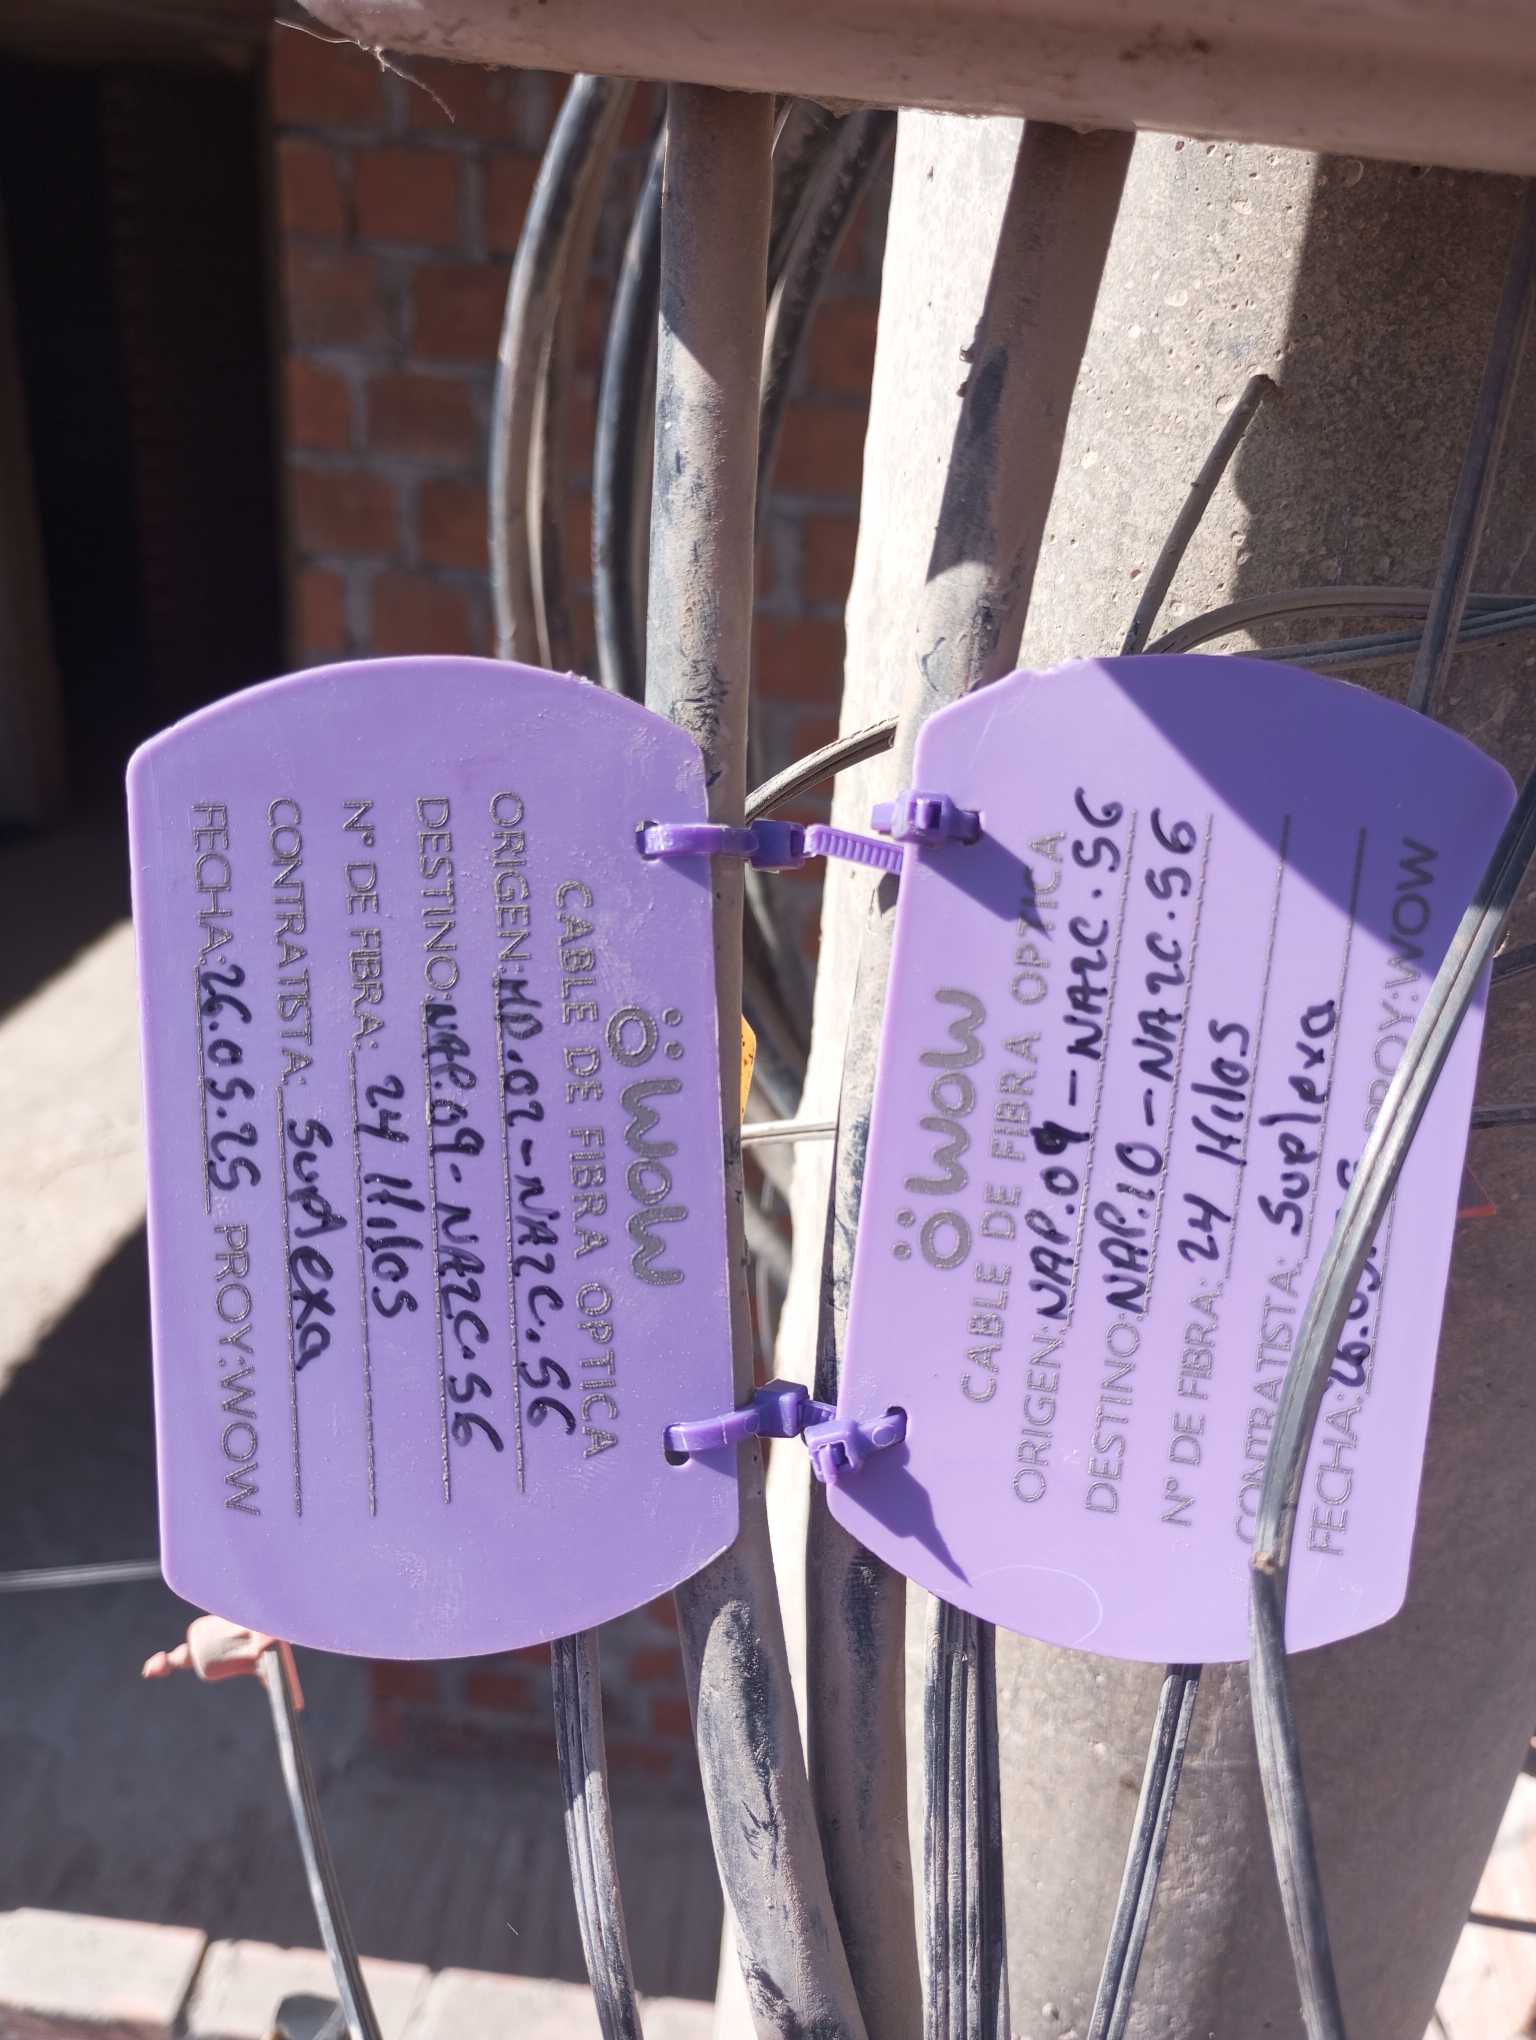 wow
CABLE DE FIBRA OPTICA
ORIGEN: HD.02-NAZC.S6
DESTINO: NAP.09-NAZC.S6
N° DE FIBRA: 24 Hilos
CONTRATISTA: Suplexa
FECHA: 26.05.25 PROY:WOW
wow
CABLE DE FIBRA OPTICA
ORIGEN: NAP.09-NAZC.S6
DESTINO: NAP.10-NAZC.S6
N° DE FIBRA: 24 Hilos
CONTRATISTA: Suplexa
FECHA: PROY:WOW